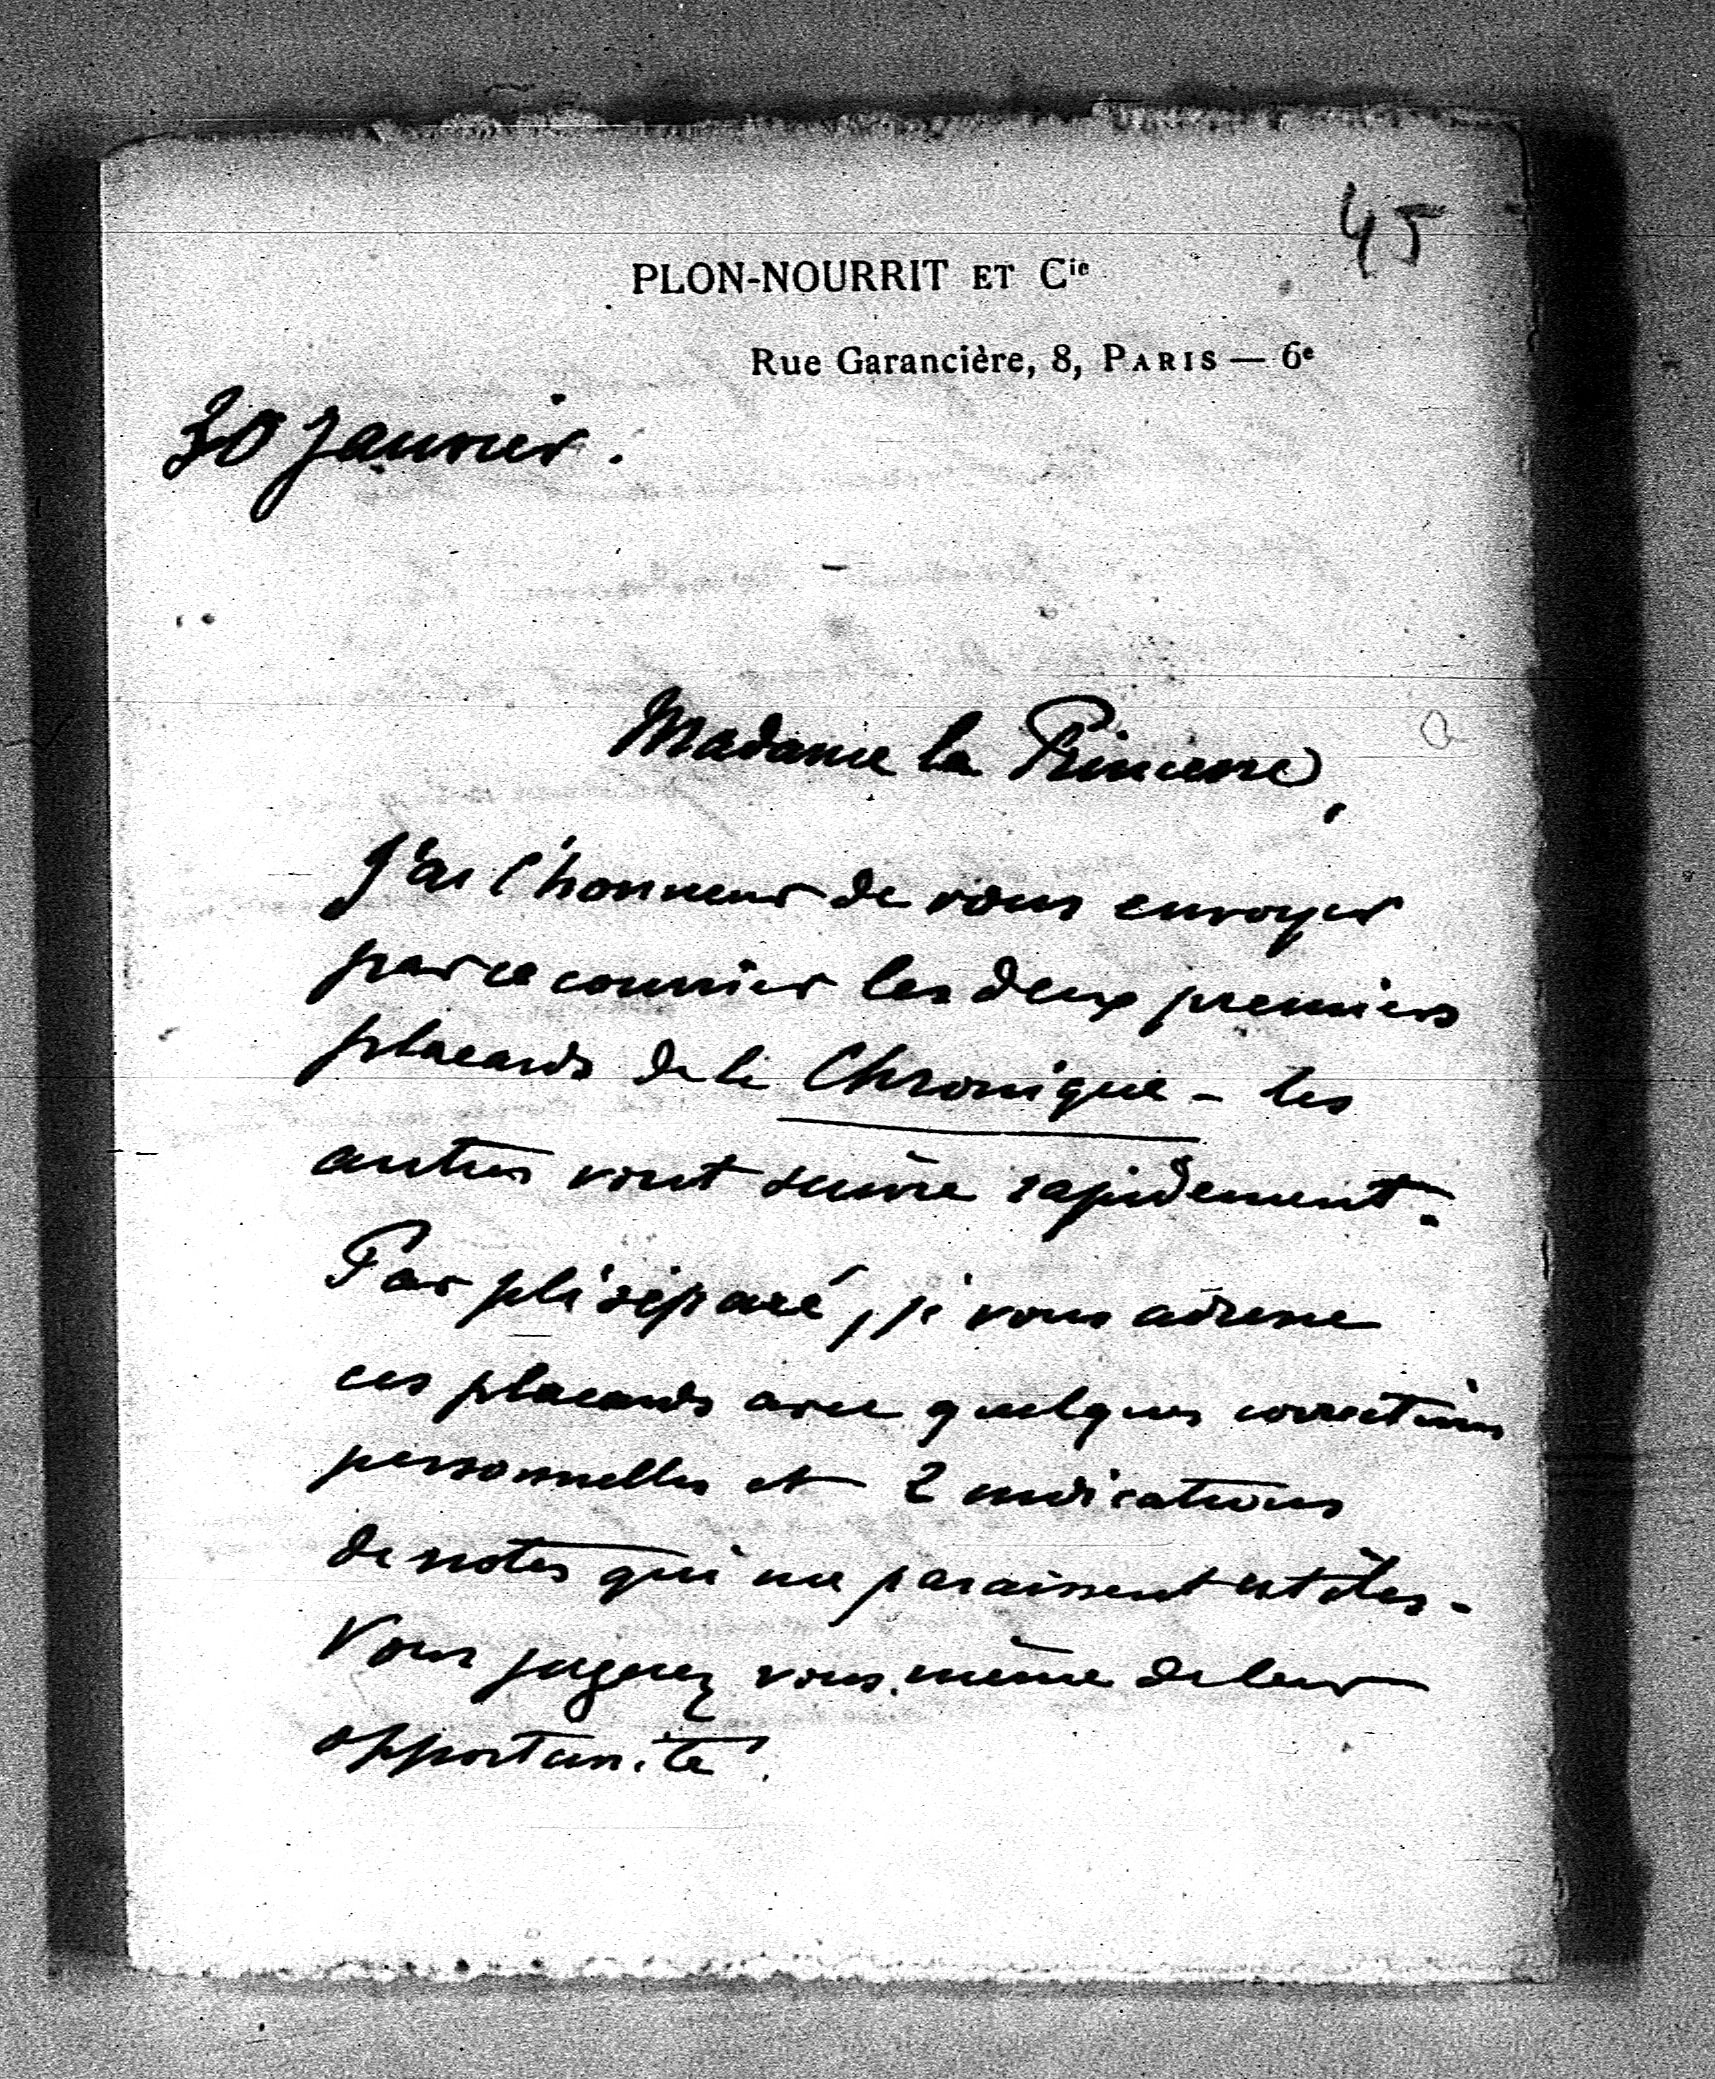 45
PLON-NOURRIT ET Cie
Rue Garancière, 8, PARIS — 6e
30 Janvier.
Madame la Princesse,
J'ai l'honneur de vous envoyer
par ce courrier les deux premiers
placards de la Chronique - les
autres vont suivre rapidement.
Par pli séparé, je vous adresse
ces placards avec quelques corrections
personnelles et 2 indications
de notes qui me paraissent utiles.
Vous jugerez vous-même de leur
opportunité.